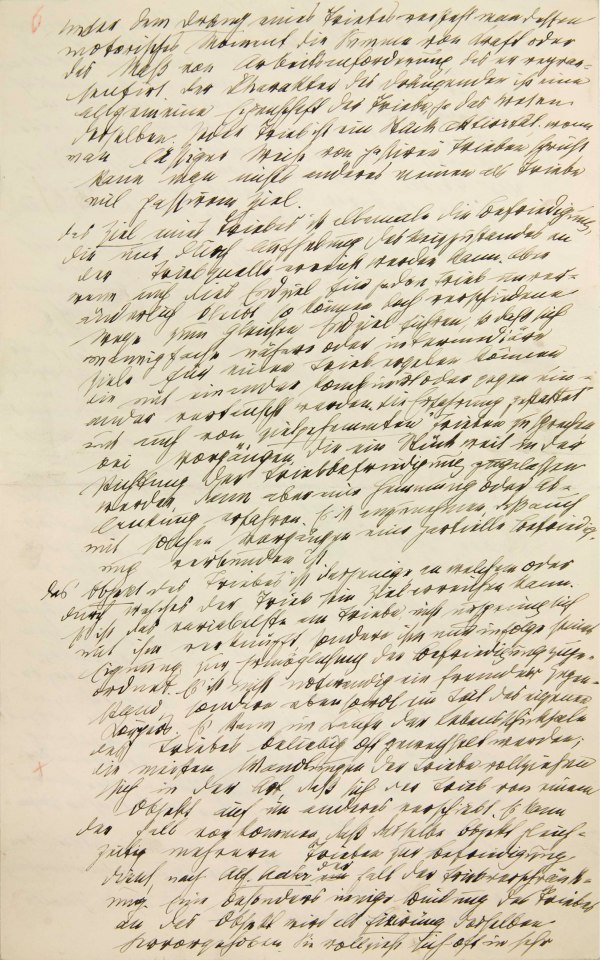 6
Unter dem Drang eines Triebes versteht man dessen
motorisches Moment, die Summe von Kraft oder
das Maß von Arbeitsanforderung, das er reprae-
sentirt. Der Charakter des Drängenden ist eine
allgemeine Eigenschaft der Triebe, ja das Wesen
derselben. Jeder Trieb ist ein Stück Aktivität. wenn
man lässiger Weise von passiven Trieben spricht
kann man nichts anderes meinen als Triebe
mit passivem Ziel.
Das Ziel eines Triebes ist allemale die Befriedigung,
die nur durch Aufhebung des Reizzustandes an
der Triebquelle erreicht werden kann. Aber
wenn auch dies Endziel für jeden Trieb unver-
änderlich bleibt, so können doch verschiedene
Wege zum gleichen Endziel führen, so daß sich
mannigfache nähere oder intermediäre
Ziele für einen Trieb ergeben können
die mit einander kombinirt oder gegen ein-
ander vertauscht werden. Die Erfahrung gestattet
uns auch von „zielgehemmten“ Trieben zu sprechen
bei Vorgängen, die ein Stück weit in der
Richtung der Triebbefriedigung zugelassen
werden, dann aber eine Hemmung oder Ab-
lenkung erfahren. Es ist anzunehmen, daß auch
mit solchen Vorgängen eine partielle Befriedig-
ung verbunden ist.
Das Objekt des Triebes ist dasjenige an welchem oder
durch welches der Trieb sein Ziel erreichen kann.
Es ist das variabelste am Triebe, nicht ursprünglich
mit ihm verknüpft sondern ihm nur infolge seiner
Eignung zur Ermöglichung der Befriedigung zuge-
ordnet. Es ist nicht notwendig ein fremder Gegen-
stand, sondern ebensowol ein Teil des eigenen
Körpers. Es kann im Laufe der Lebensschicksale
des Triebes beliebig oft gewechselt werden;
die meisten Wandlungen der Triebe vollziehen
sich in der Art, daß sich der Trieb von einem
Objekt auf ein anderes verschiebt. Es kann
der Fall vorkommen, daß dasselbe Objekt gleich-
zeitig mehreren Trieben zur Befriedigung
dient, nach Alf. Adler der Fall der Triebverschränk-
ung. Eine besonders innige Bindung des Triebes
an das Objekt wird als Fixirung desselben
hervorgehoben. Sie vollzieht sich oft in sehr